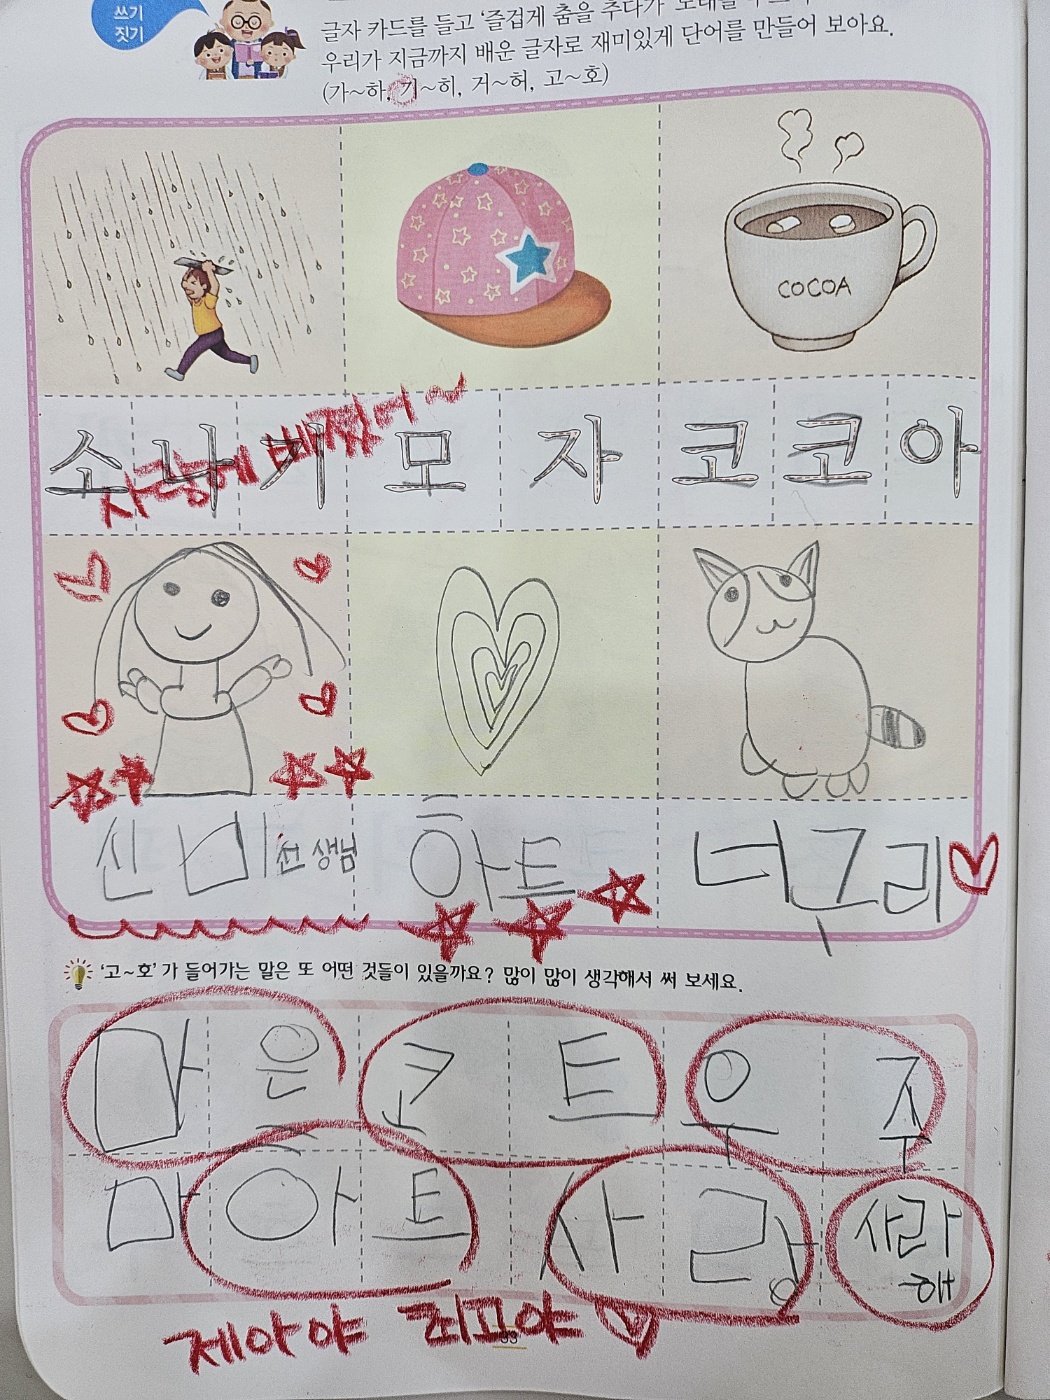 쓰기
짓기
글자 카드를 들고 '즐겁게 춤을 추다가'
우리가 지금까지 배운 글자로 재미있게 단어를 만들어 보아요.
(가~하, 기~히, 거~허, 고~호)
COCOA
소 나 기 모 자 코 코 아
신 비 선생님 하 트 너 구 리
'고~호'가 들어가는 말은 또 어떤 것들이 있을까요? 많이 많이 생각해서 써 보세요.
마 은 코 트 우 주
마 하 트 사 랑 사랑해
제아야
33